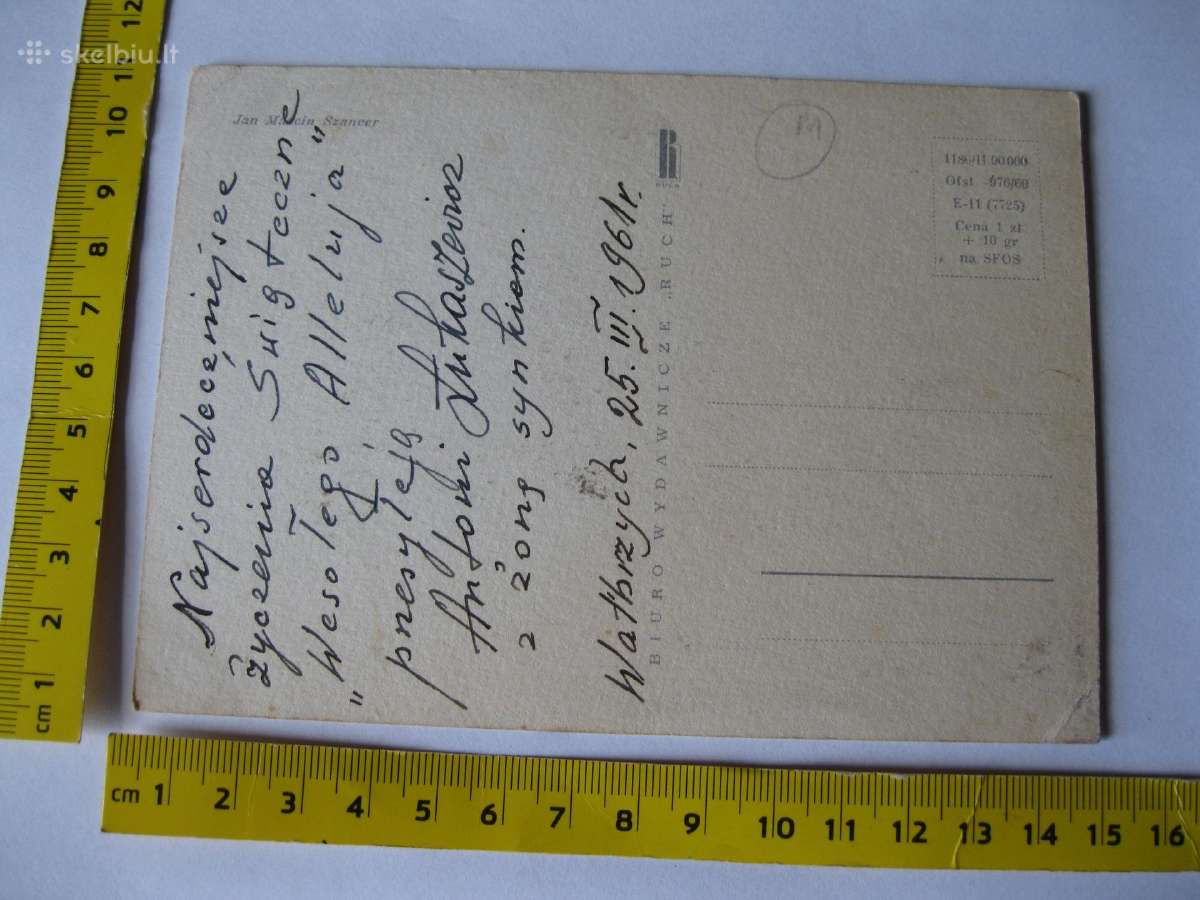 skelbiu.lt
Jan Marcin Szancer
Najserdeczniejsze
życzenia Świąteczne
„Wesołego Alleluja"
przesyłają
Antoni Łukaszewicz
z żoną synkiem.
Wałbrzych, 25.III.1961r.
BIURO WYDAWNICZE „RUCH"
RUCH
Ofst
E-11 (7725)
Cena 1 zł
+ 10 gr
na SFOS
cm 1 2 3 4 5 6 7 8 9 10 11 12
cm 1 2 3 4 5 6 7 8 9 10 11 12 13 14 15 16